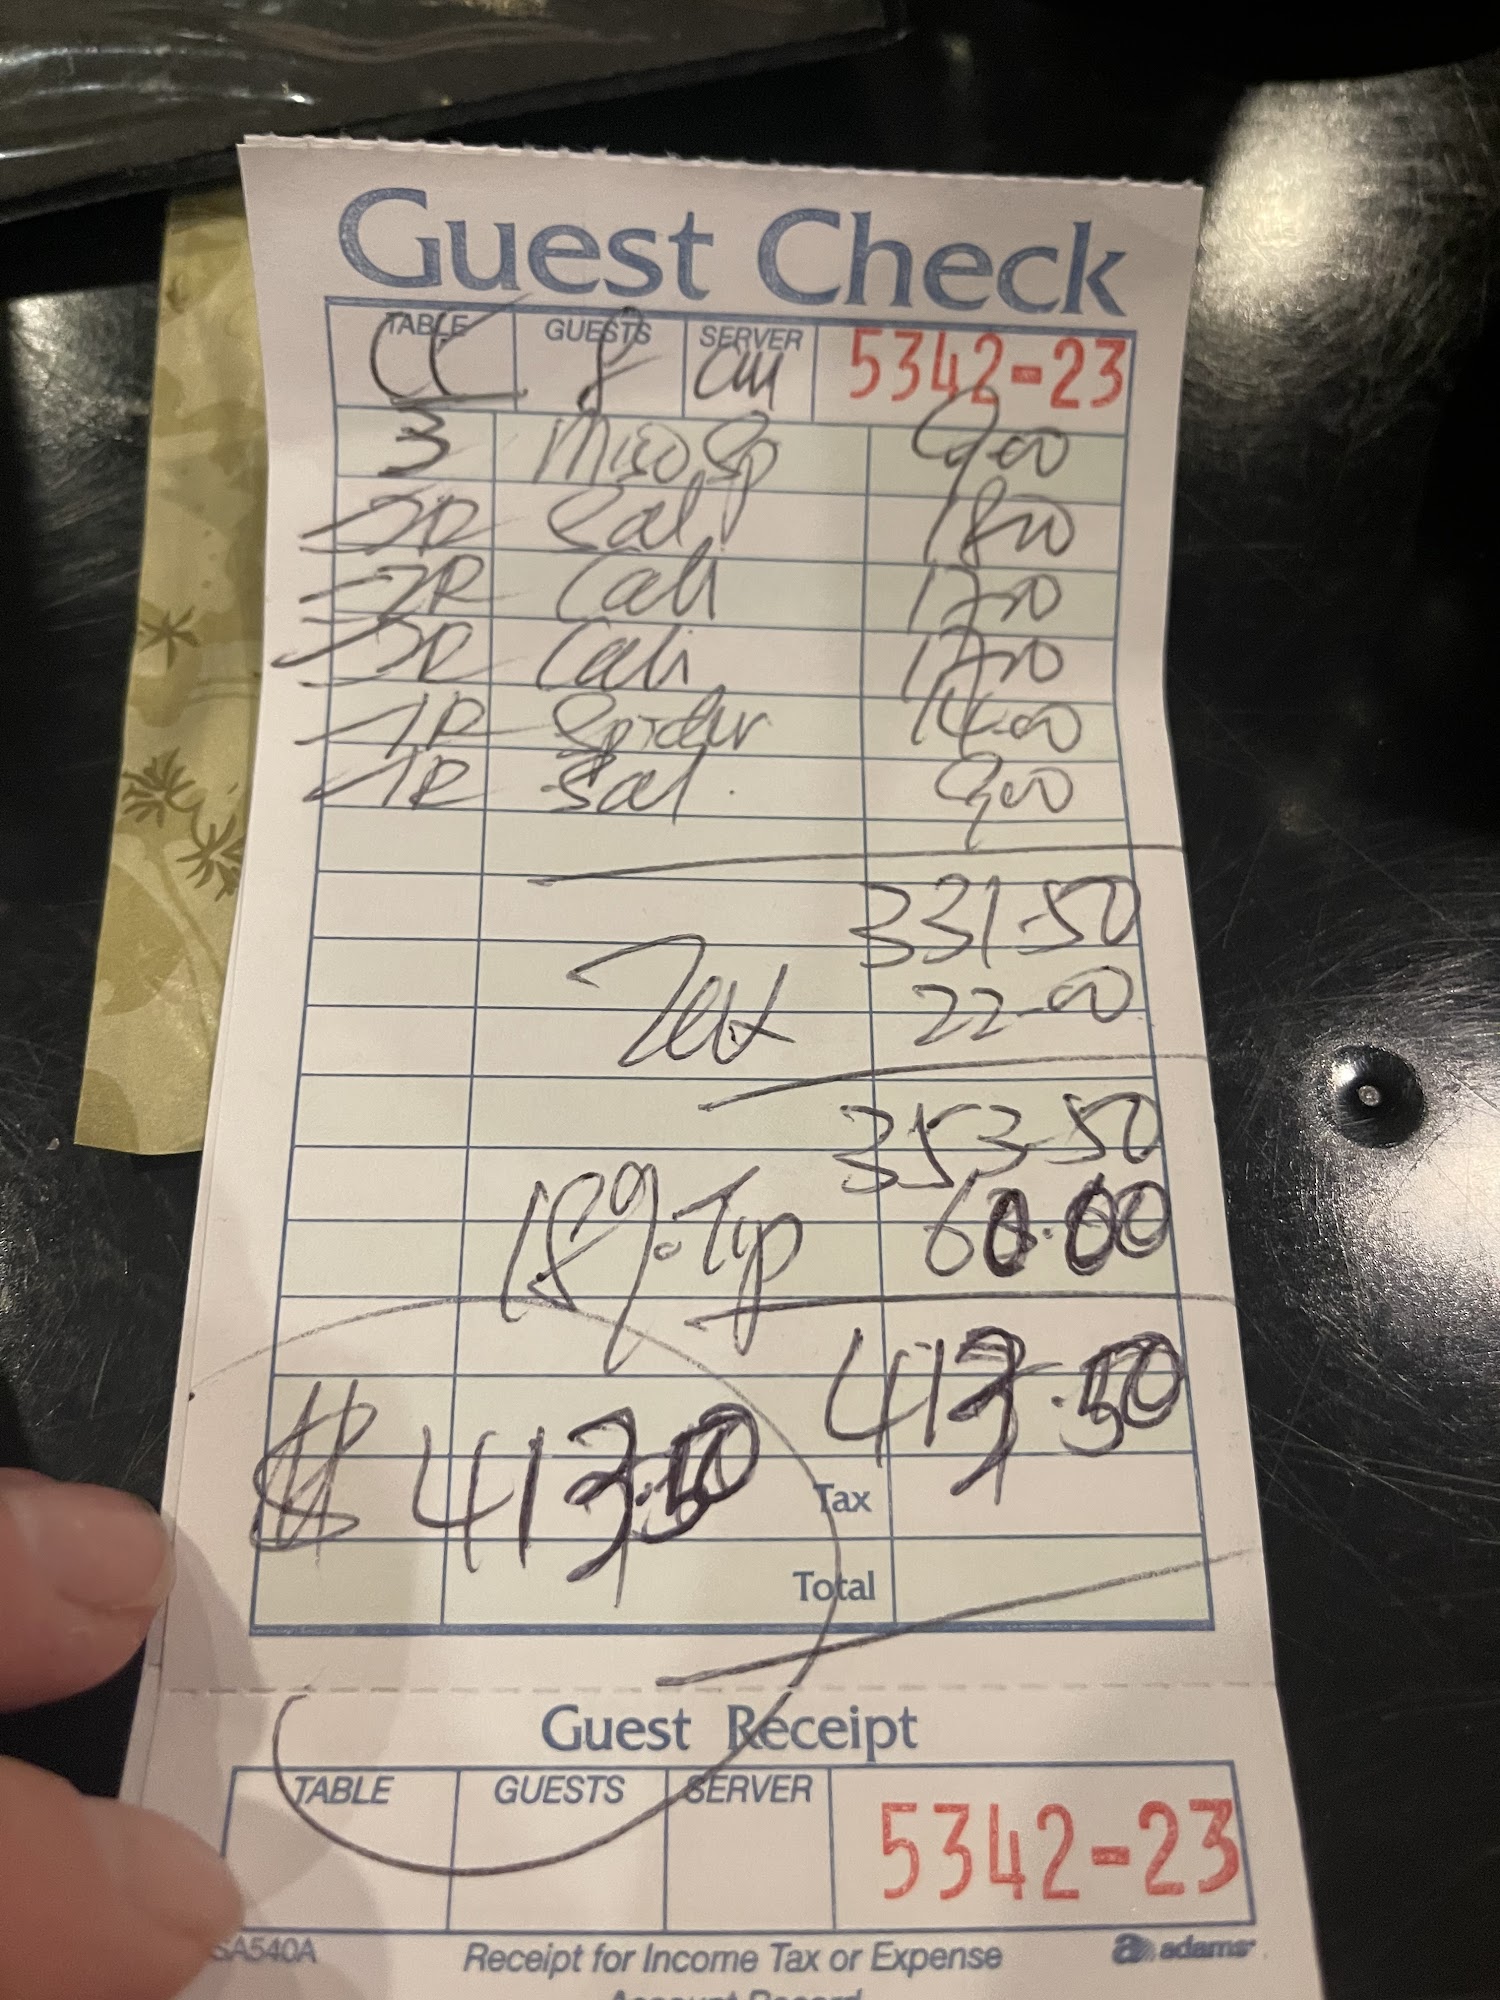 Guest Check
TABLE GUESTS SERVER 5342-23
CC 8 CM
3 Miso Sp 9.00
2R Sal 18.00
2R Cali 17.00
2R Cali 17.00
1R Spider 14.00
1R Sal. 9.00
331.50
Tax 22.00
353.50
18% Tip 60.00
413.50
$ 413.50
Tax
Total
Guest Receipt
TABLE GUESTS SERVER 5342-23
SA540A Receipt for Income Tax or Expense adams
Account Record